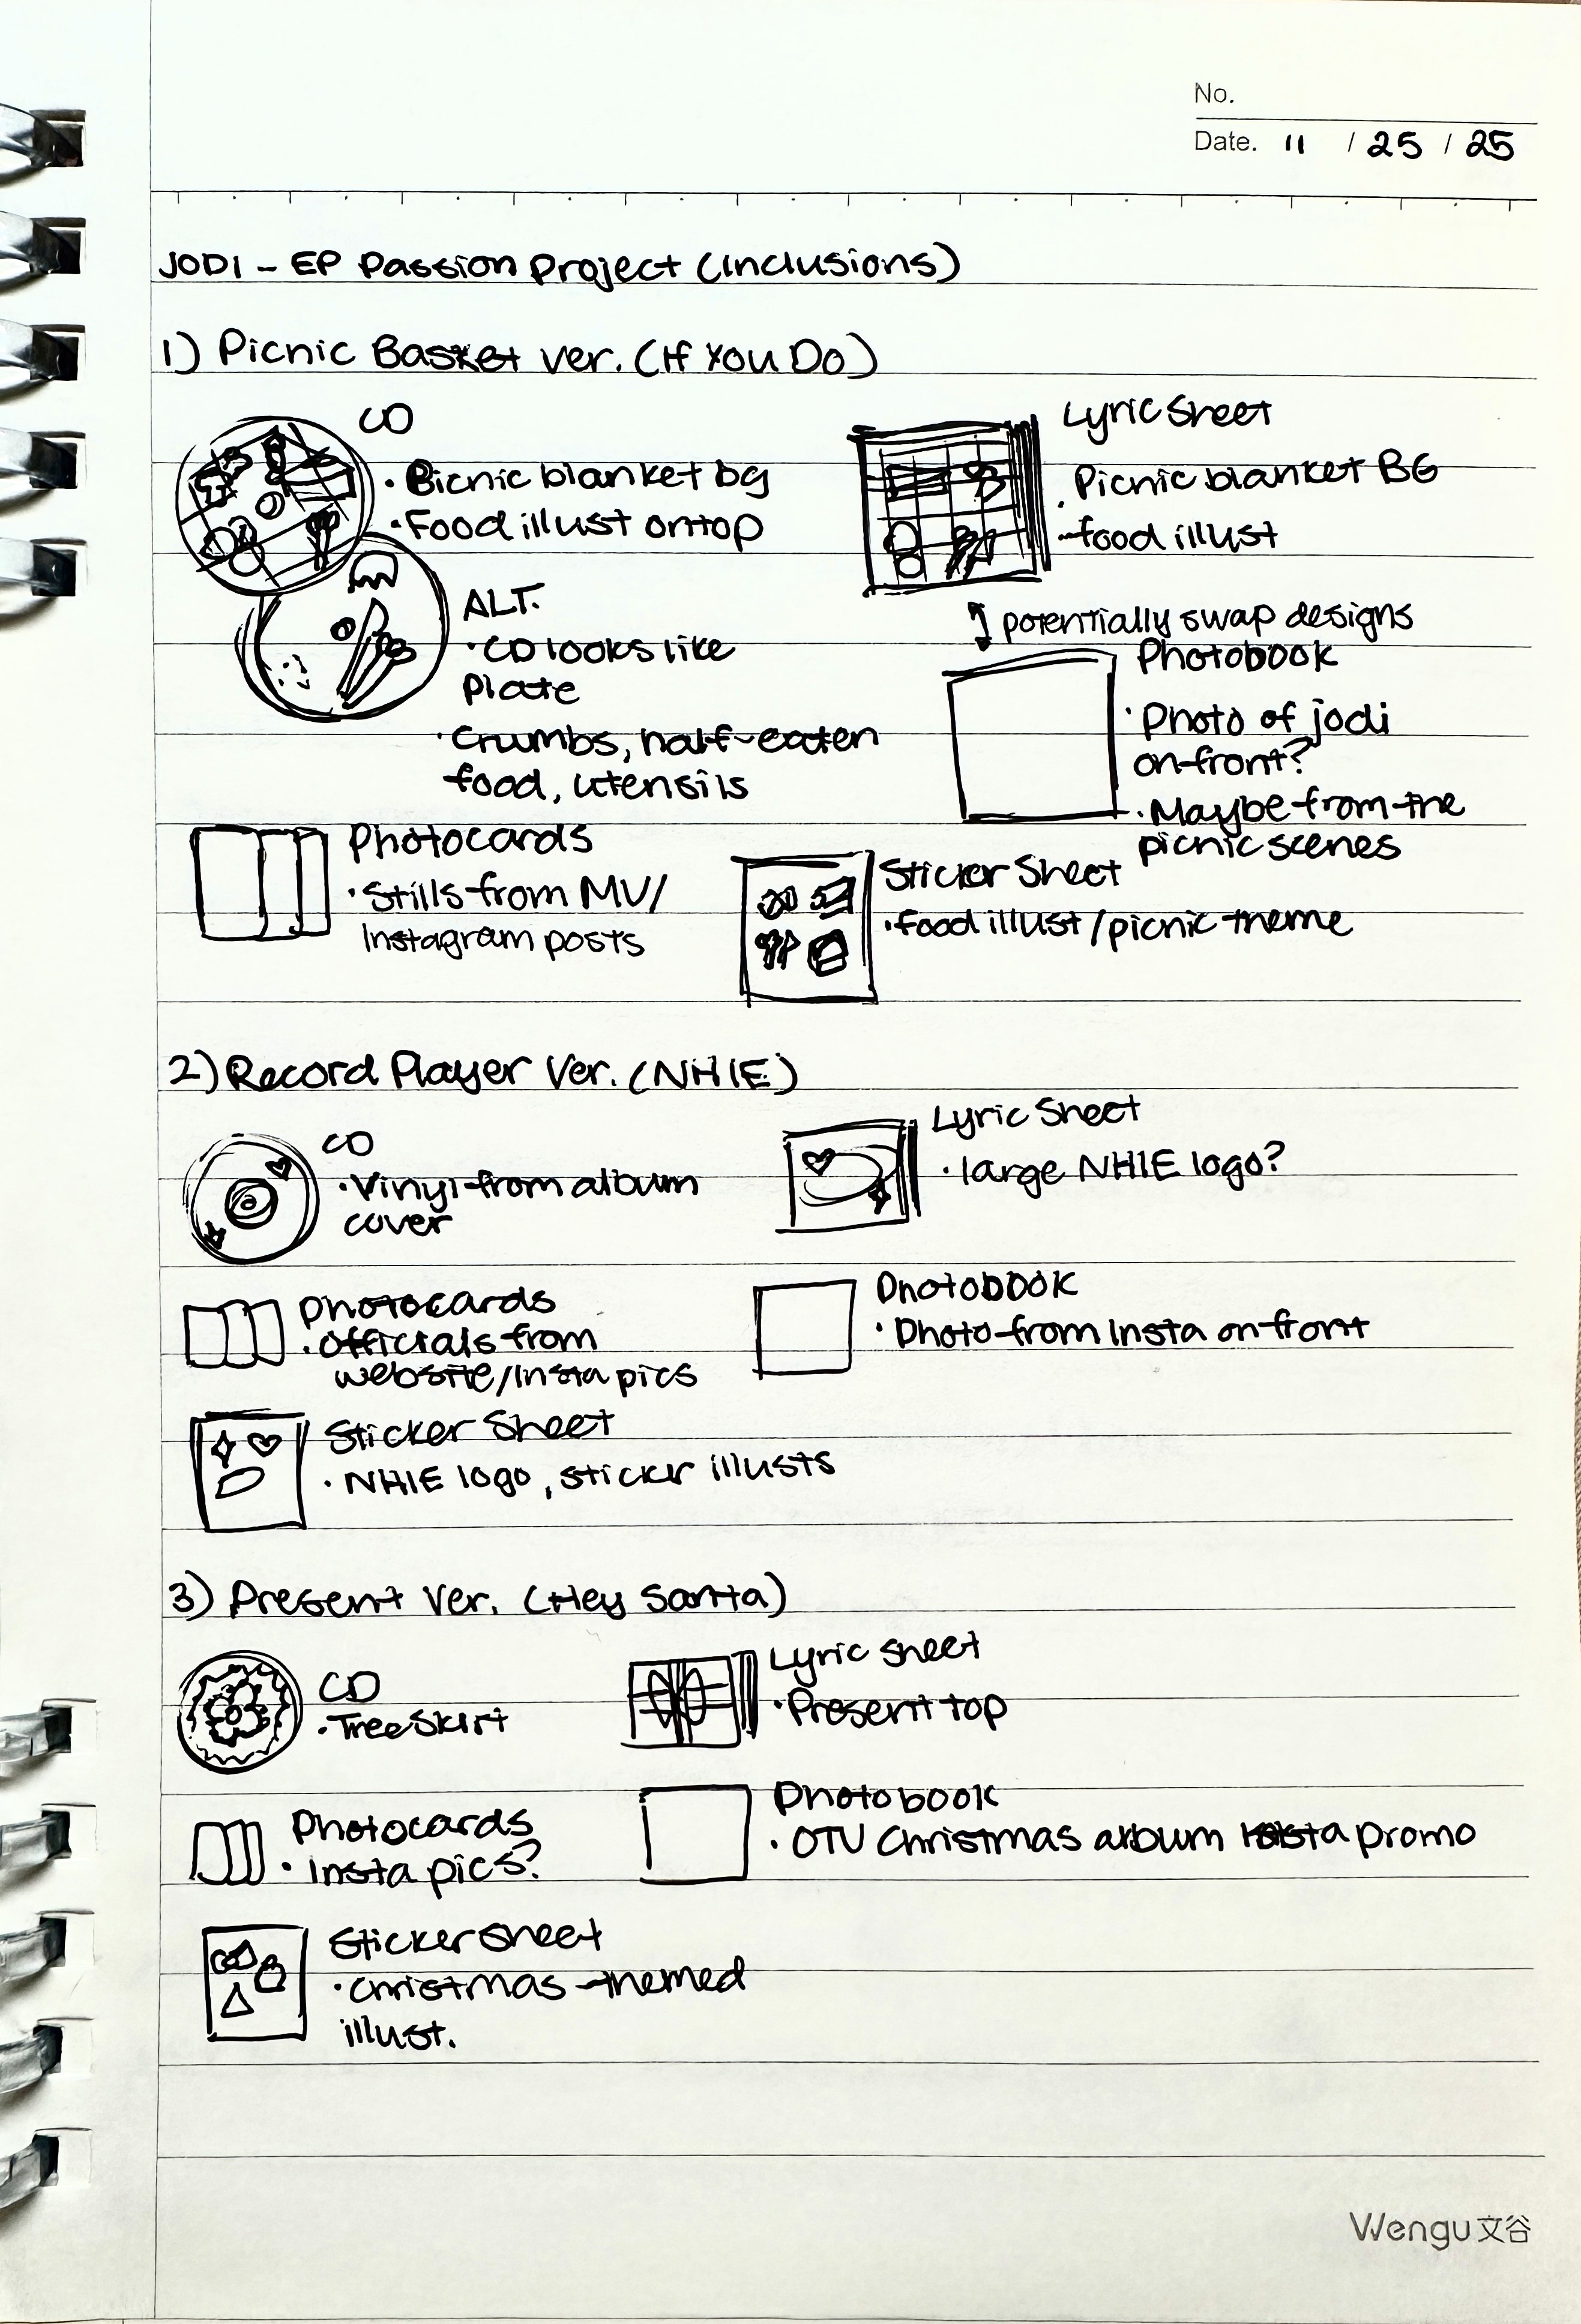 No.
Date. 11 / 25 / 25
JODI - EP Passion Project (Inclusions)
1) Picnic Basket ver. (If You Do)
CD
• Picnic blanket bg
• Food illust ontop
ALT.
• CD looks like
plate
• Crumbs, half-eaten
food, utensils
Lyric Sheet
• Picnic blanket BG
• food illust
potentially swap designs
Photobook
• Photo of jodi
on front?
• Maybe from the
picnic scenes
Photocards
• Stills from MV/
Instagram posts
Sticker Sheet
• food illust/picnic theme
2) Record Player Ver. (NHIE)
CD
• Vinyl from album
cover
Lyric Sheet
• large NHIE logo?
Photocards
• Officials from
website/Insta pics
Photobook
• Photo from Insta on front
Sticker Sheet
• NHIE logo, sticker illusts
3) Present Ver. (Hey Santa)
CD
• Tree Skirt
Lyric sheet
• Present top
Photocards
• Insta pics?
Photobook
• OTU Christmas album Insta promo
Sticker Sheet
• Christmas-themed
illust.
Wengu文谷